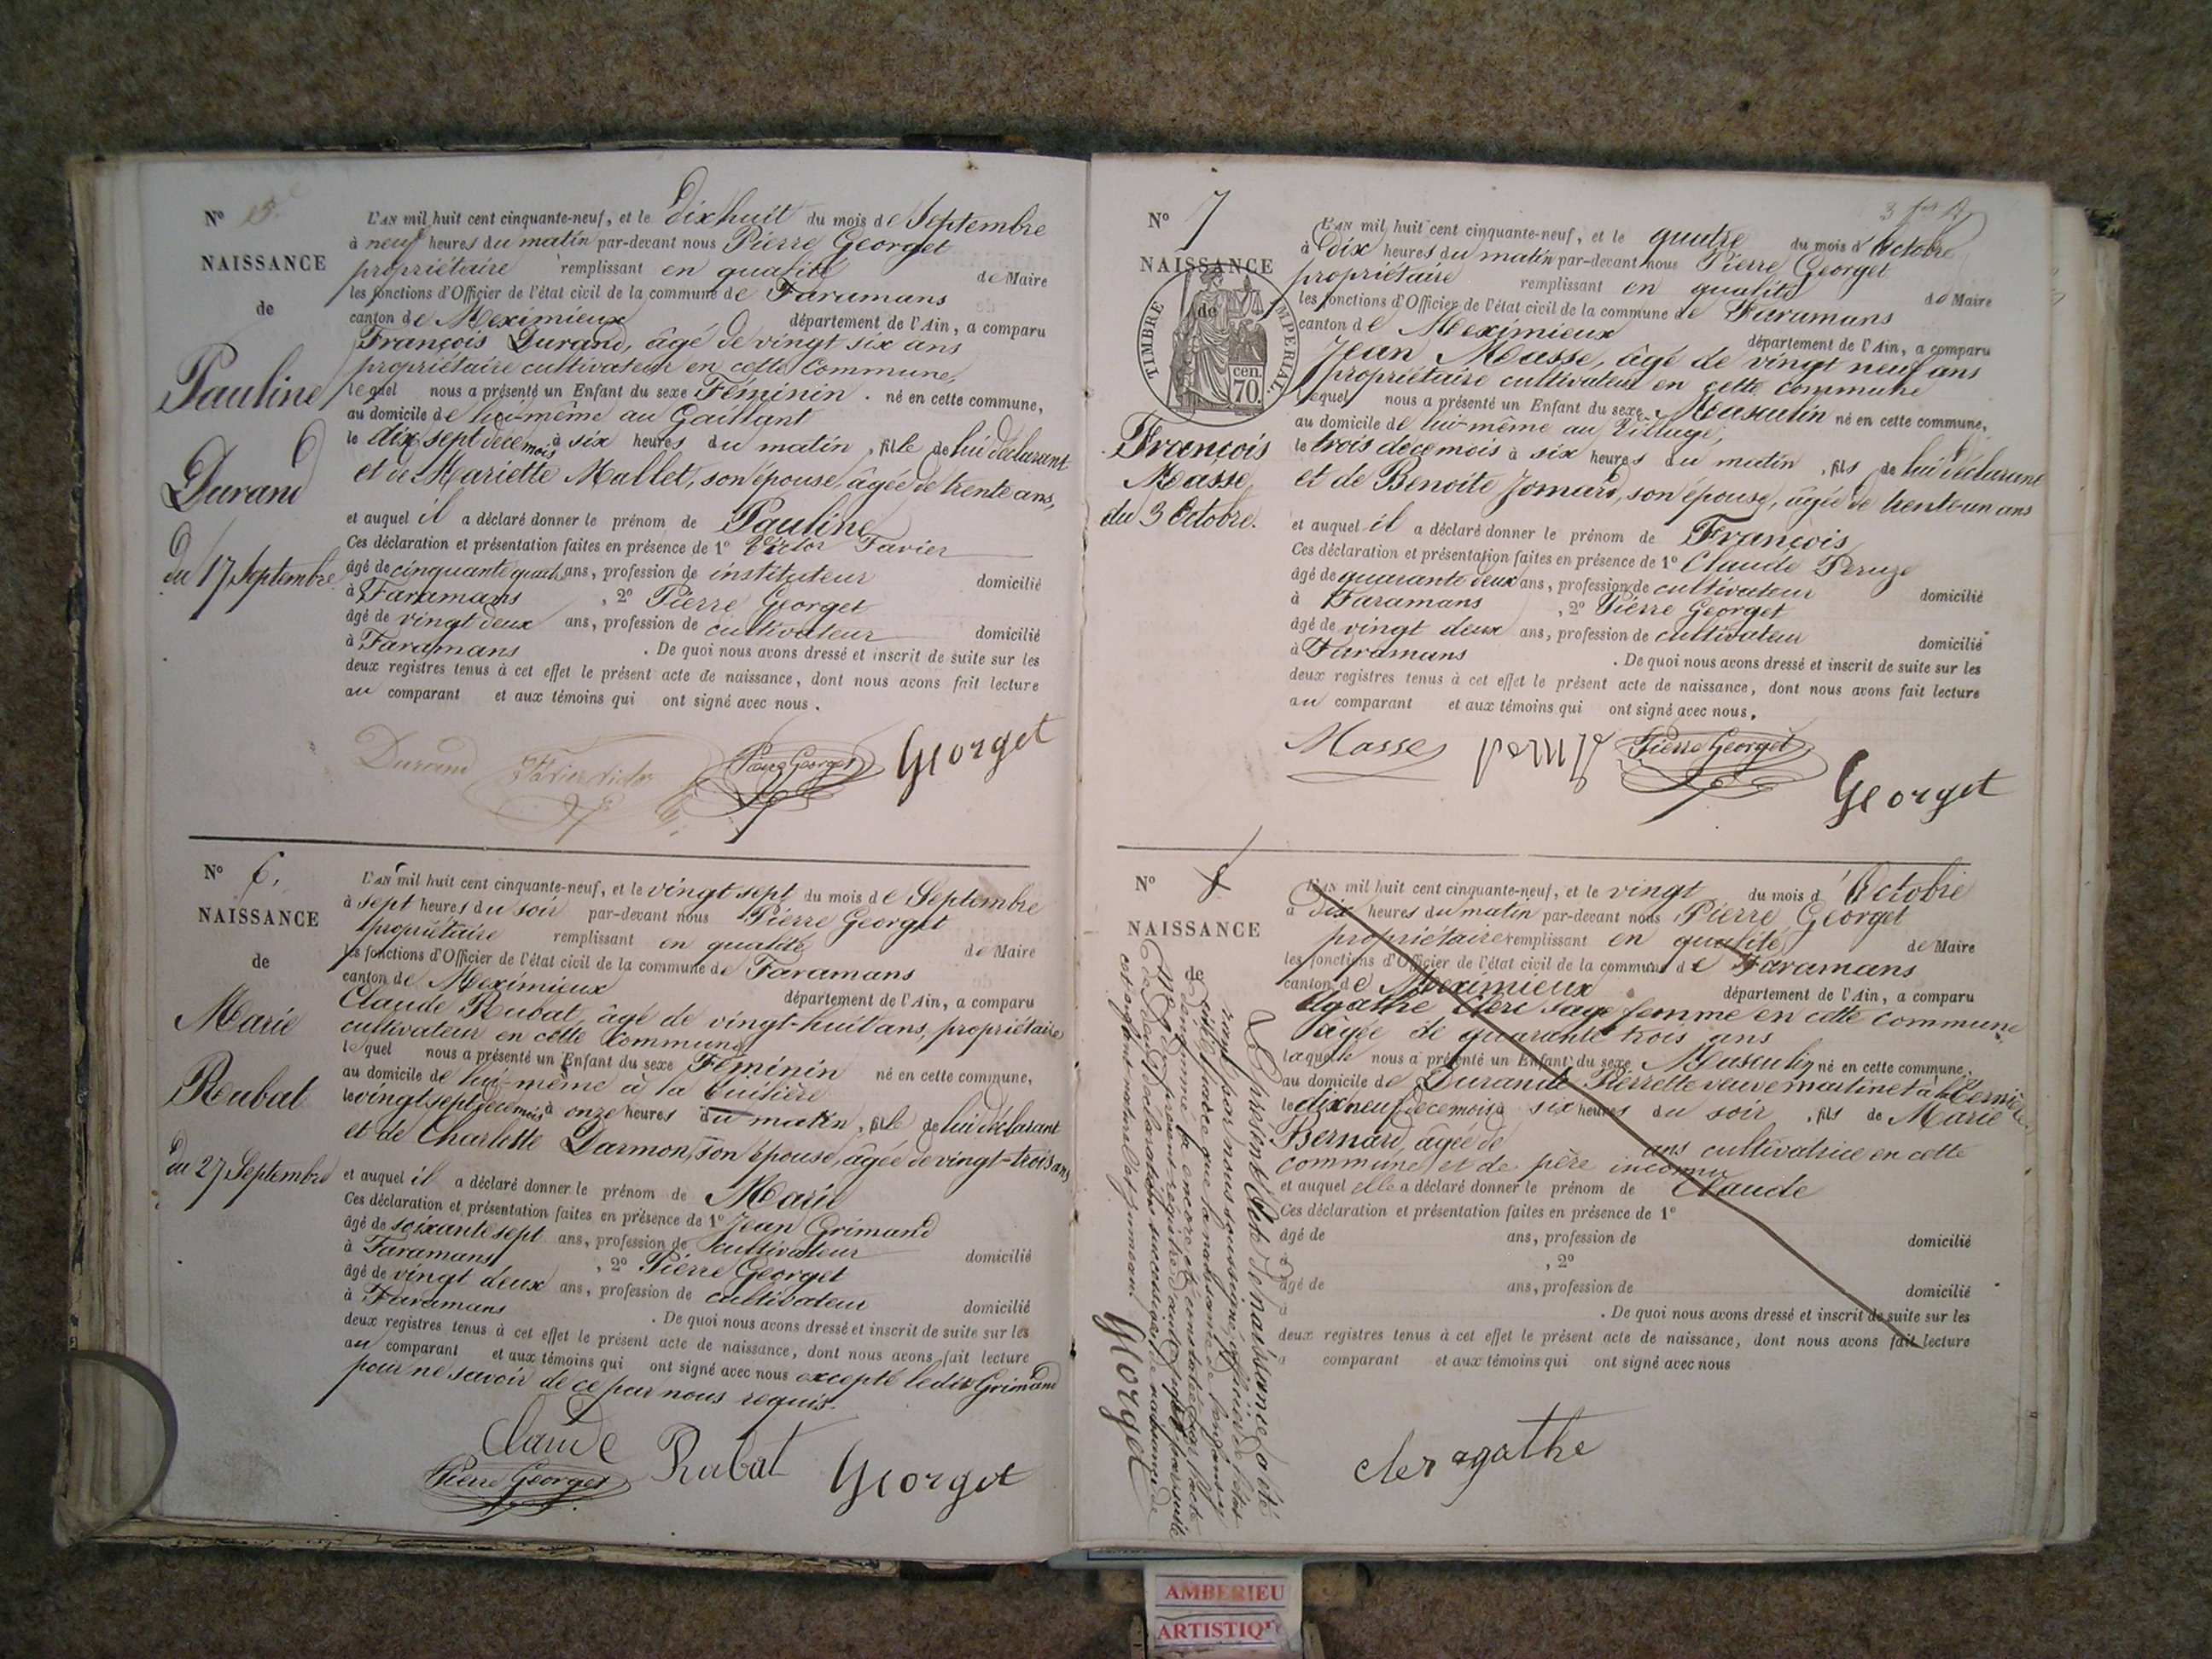 N° 5
NAISSANCE
de
Pauline
Durand
du 17 Septembre
L'AN mil huit cent cinquante-neuf, et le dix huit du mois de Septembre
à neuf heures du matin par-devant nous Pierre Georget
propriétaire remplissant en qualité de Maire
les fonctions d'Officier de l'état civil de la commune de Faramans
canton de Meximieux département de l'Ain, a comparu
François Durand, âgé de vingt six ans
propriétaire cultivateur en cette Commune,
lequel nous a présenté un Enfant du sexe Féminin . né en cette commune,
au domicile de lui-même au Gaillant
le dix sept dece mois à six heures du matin, fille de lui déclarant
et de Mariette Mallet, son épouse, âgée de trente ans,
et auquel il a déclaré donner le prénom de Pauline
Ces déclaration et présentation faites en présence de 1° Victor Favier
âgé de cinquante quatre ans, profession de instituteur domicilié
à Faramans , 2° Pierre Georget
âgé de vingt deux ans, profession de cultivateur domicilié
à Faramans . De quoi nous avons dressé et inscrit de suite sur les
deux registres tenus à cet effet le présent acte de naissance, dont nous avons fait lecture
au comparant et aux témoins qui ont signé avec nous.
Durand Favier victor Pierre Georget Georget
N° 6.
NAISSANCE
de
Marie
Rubat
du 27 Septembre
L'AN mil huit cent cinquante-neuf, et le vingt sept du mois de Septembre
à sept heures du soir par-devant nous Pierre Georget
propriétaire remplissant en qualité de Maire
les fonctions d'Officier de l'état civil de la commune de Faramans
canton de Meximieux département de l'Ain, a comparu
Claude Rubat, âgé de vingt-huit ans, propriétaire
cultivateur en cette Commune
lequel nous a présenté un Enfant du sexe Féminin né en cette commune,
au domicile de lui-même à la Cuitière
le vingt sept dece mois à onze heures du matin, fille de lui déclarant
et de Charlotte Darmon, son épouse, âgée de vingt-trois ans
et auquel il a déclaré donner le prénom de Marie
Ces déclaration et présentation faites en présence de 1° Jean Grimand
âgé de soixante sept ans, profession de cultivateur domicilié
à Faramans , 2° Pierre Georget
âgé de vingt deux ans, profession de cultivateur domicilié
à Faramans . De quoi nous avons dressé et inscrit de suite sur les
deux registres tenus à cet effet le présent acte de naissance, dont nous avons fait lecture
au comparant et aux témoins qui ont signé avec nous excepté ledit Grimand
pour ne savoir de ce par nous requis.
Claude Rubat Georget
Pierre Georget
N° 7
NAISSANCE
de
TIMBRE IMPERIAL.
cen.
70.
François
Masse,
du 3 Octobre.
L'AN mil huit cent cinquante-neuf, et le quatre du mois d'Octobre
à dix heures du matin par-devant nous Pierre Georget
propriétaire remplissant en qualité de Maire
les fonctions d'Officier de l'état civil de la commune de Faramans
canton de Meximieux département de l'Ain, a comparu
Jean Masse, âgé de vingt neuf ans
propriétaire cultivateur en cette commune
lequel nous a présenté un Enfant du sexe Masculin né en cette commune,
au domicile de lui-même au Village,
le trois dece mois à six heures du matin, fils de lui déclarant
et de Benoite Jomard, son épouse, âgée de trente un ans
et auquel il a déclaré donner le prénom de François
Ces déclaration et présentation faites en présence de 1° Claude Peruze
âgé de quarante deux ans, profession de cultivateur domicilié
à Faramans , 2° Pierre Georget
âgé de vingt deux ans, profession de cultivateur domicilié
à Faramans . De quoi nous avons dressé et inscrit de suite sur les
deux registres tenus à cet effet le présent acte de naissance, dont nous avons fait lecture
au comparant et aux témoins qui ont signé avec nous.
Masse Pierre Georget
Georget
N° 8
NAISSANCE
de
L'AN mil huit cent cinquante-neuf, et le vingt du mois d'Octobre
à Dix heures du matin par-devant nous Pierre Georget
propriétaire remplissant en qualité de Maire
les fonctions d'Officier de l'état civil de la commune de Faramans
canton de Meximieux département de l'Ain, a comparu
Agathe Clerc sage femme en cette commune
âgée de quarante trois ans
laquelle nous a présenté un Enfant du sexe Masculin né en cette commune,
au domicile de Durande Pierrette veuve martinet à
le dix neuf dece mois à six heures du soir, fils de Marie
Bernard, âgée de ans cultivatrice en cette
commune et de père inconnu
et auquel elle a déclaré donner le prénom de Claude
Ces déclaration et présentation faites en présence de 1°
âgé de ans, profession de domicilié
à , 2°
âgé de ans, profession de domicilié
à . De quoi nous avons dressé et inscrit de suite sur les
deux registres tenus à cet effet le présent acte de naissance, dont nous avons fait lecture
a comparant et aux témoins qui ont signé avec nous
cler agathe
Le présent Acte de naissance a été
par nous soussigné, officier de l'état
civil, parce que la naissance de
Georget
AMBERIEU
ARTISTIQ